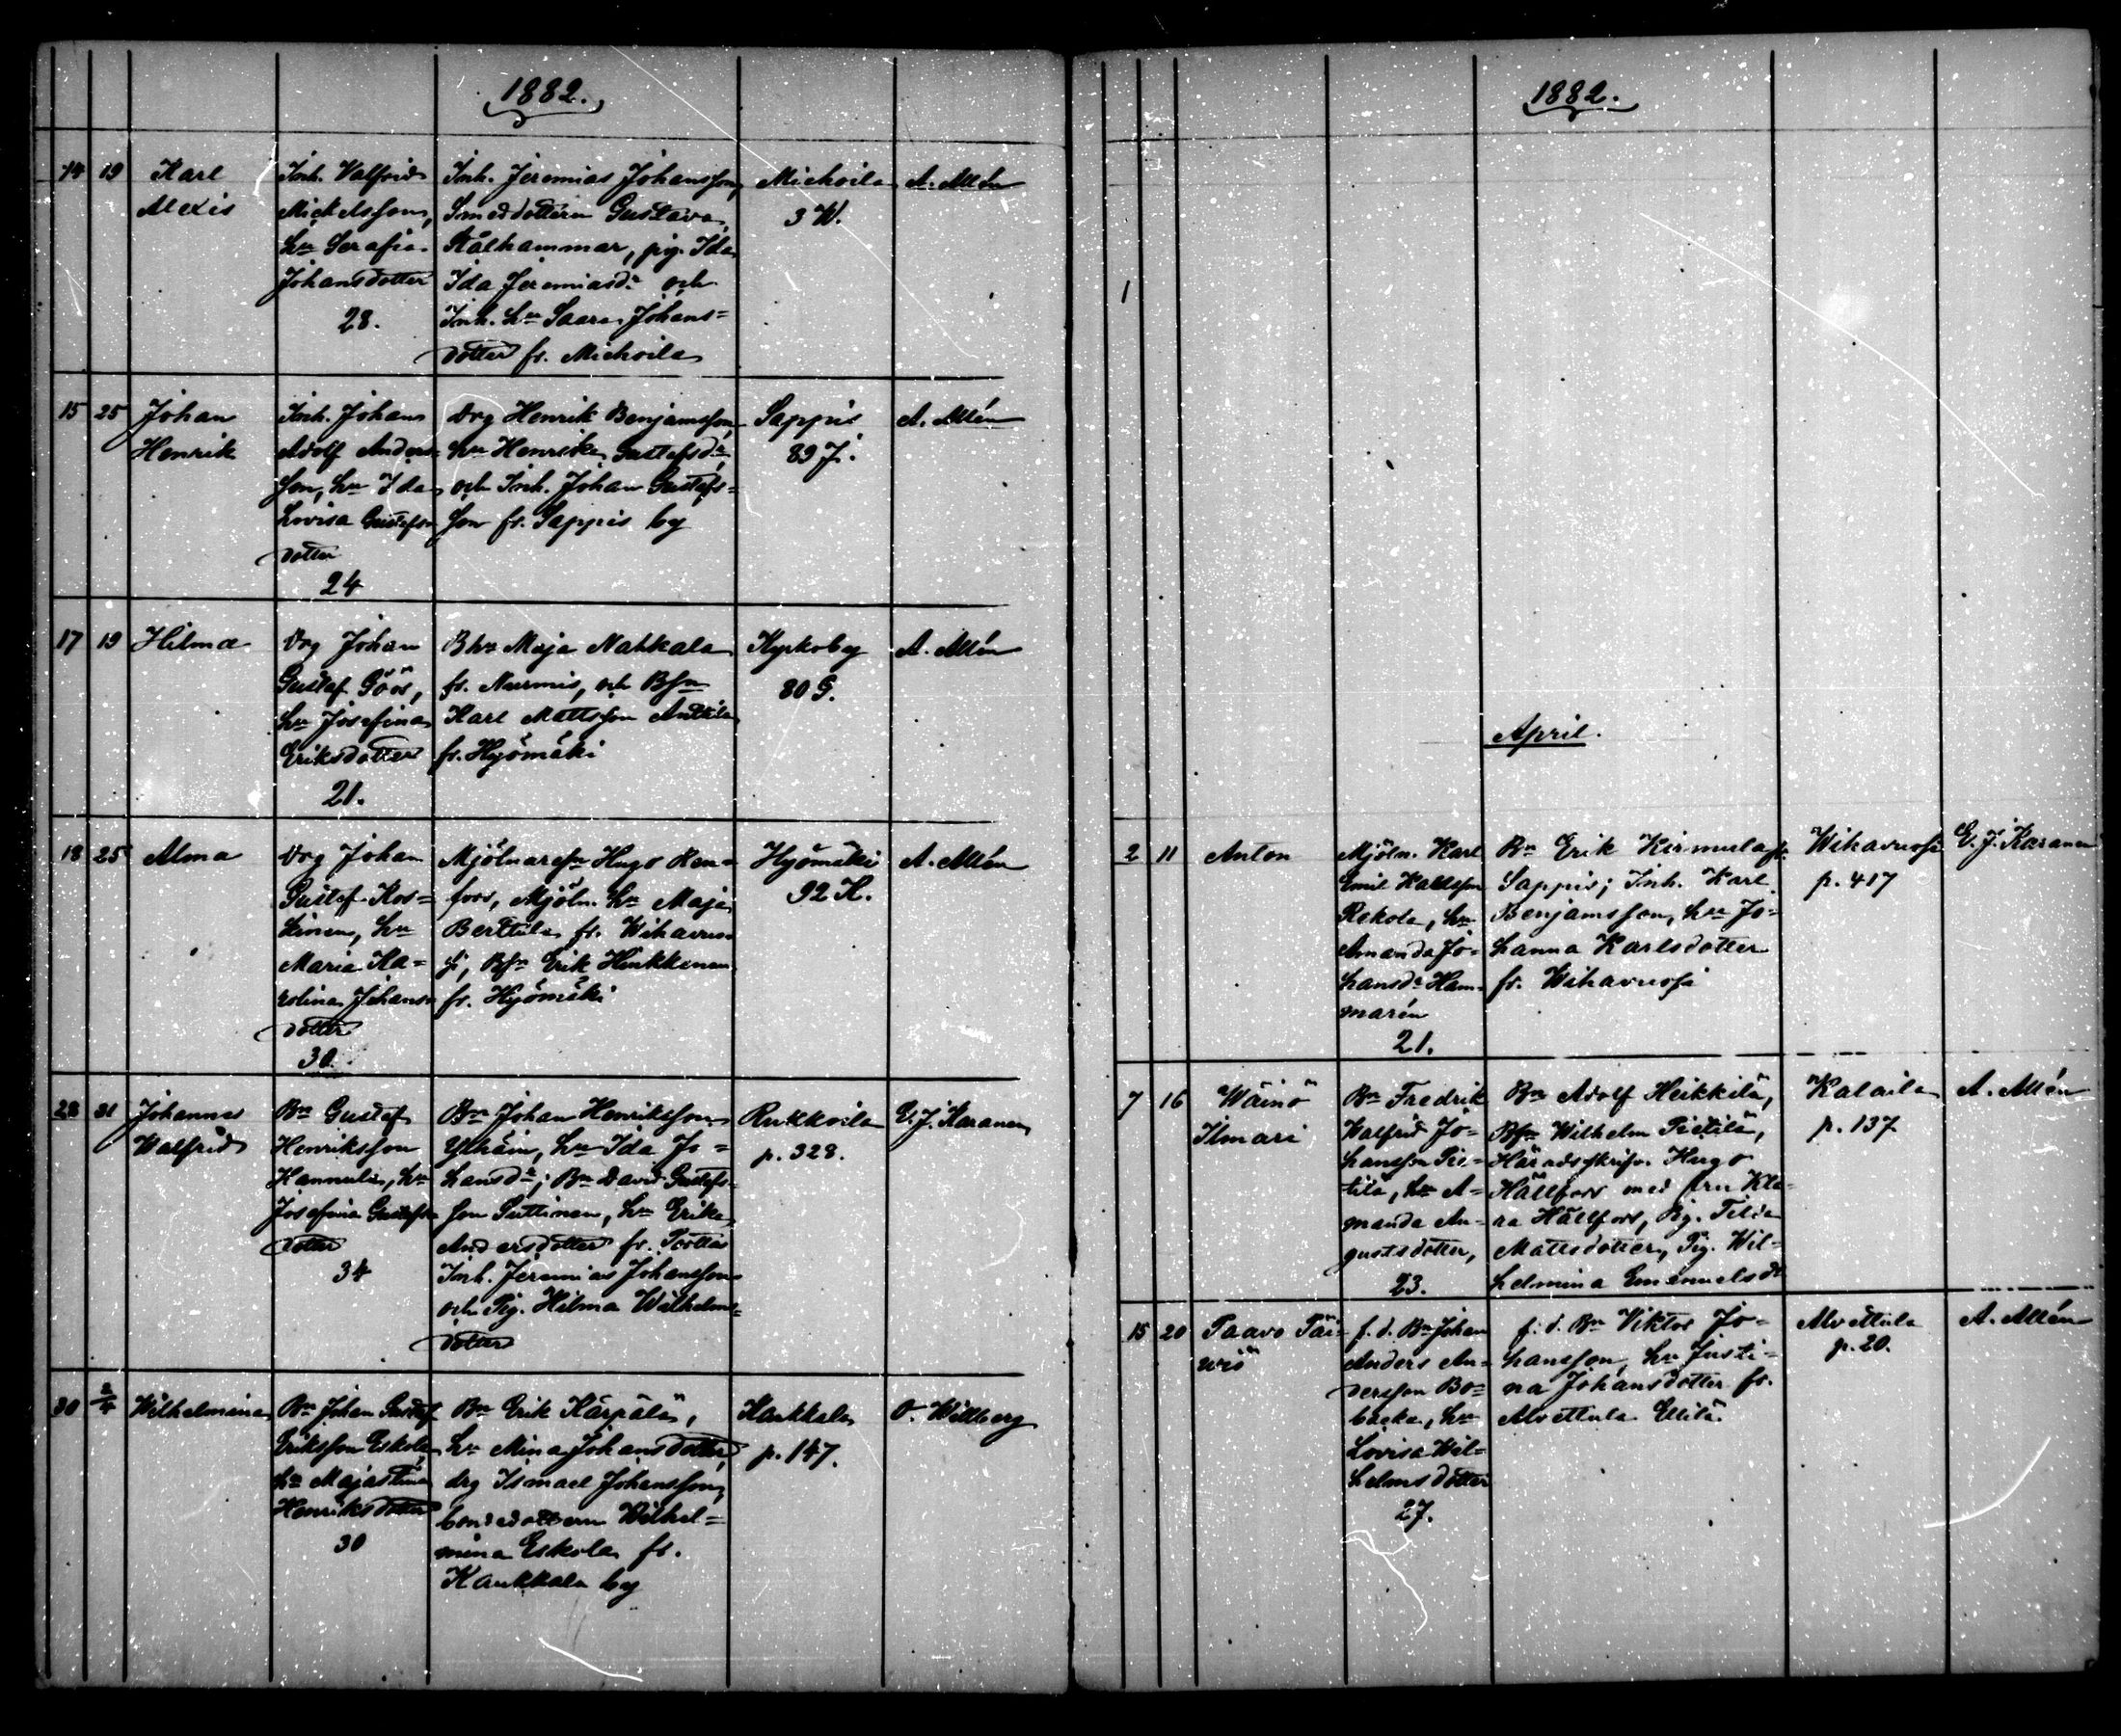 1882.
14 19 Karl Alexis
Inh. Valfrid
Mickelsson,
hu Serafia
Johansdotter
28.
Inh. Jeremias Johansson,
Smeddottern Gustava
Stålhammar, pig. Ida
Ida Jeremiasdr och
Inh. hu Saara Johans=
dotter fr. Michoila
Michoila
3 W.
A. Allén
15 25 Johan
Henrik
Inh. Johan
Adolf Anders=
son, hu Ida
Lovisa Gustafs
dotter
24
Drg Henrik Benjamsson,
hu Henrika Gustafsdr
och Inh. Johan Gustafs=
son fr. Sappis by
Sappis
89 J.
A. Allén
17 19 Hilma
Drg Johan
Gustaf Göös,
hu Josefina
Eriksdotter
21.
Bhu Maja Nahkala
fr. Nurmis, och Bsn
Karl Mattsson Anttila
fr. Hyömäki
Kyrkoby
80 G.
A. Allén
18 25 Alma
Drg Johan
Gustaf Kos=
kinen, hu
Maria Ka=
rolina Johans
dotter
30.
Mjölnaresn Hugo Ren=
fors, Mjöln. hu Maja
Berttula fr. Wihavuo
si, Bsn Erik Heikkinen
fr. Hyömäki
Hyömäki
92 K.
A. Allén
22 31 Johannes
Walfrid
Bn Gustaf
Henriksson
Hannula, hu
Josefina Gustafs
dotter
34
Bn Johan Henriksson
Ylhäin, hu Ida Jo=
hansdr; Bn David Gustafs-
son Suttinen, hu Erika
Andersdotter fr. Torttas
Inh. Jeremias Johansson
och Pig. Hilma Wilhelms=
dotter
Rukkoila
p. 328.
G. J. Karanen
30 2/4 Wilhelmina
Bn Johan Gustaf
Eriksson Eskola,
hu Majastina
Henriksdotter
30
Bn Erik Kärpälä,
hu Mina Johansdotter,
drg Ismael Johansson,
bondedottern Wilhel=
mina Eskola fr.
Kaukkala by
Kaukkala
p. 147.
O. Willberg
1882.
1
April.
2 11 Anton
Mjöln. Karl
Emil Kallsson
Rekola, hu
Amanda Jo=
hansdr Ham-
marén
21.
Bn Erik Kirmula fr.
Sappis; Inh. Karl
Benjamsson, hu Jo=
hanna Karlsdotter
fr. Wihavuosi
Wihavuosi
p. 417
G. J. Karanen
7 16 Wäinö
Ilmari
Bn Fredrik
Walfrid Jo=
hansson Pie=
tilä, hu A=
manda Au-
gustsdotter,
23.
Bn Adolf Heikkilä,
Bsn Wilhelm Pietilä,
Häradsskrifv. Hugo
Hällfors med fru Kla-
ra Hällfors, Pig. Tilda
Mattsdotter, Pig. Wil=
helmina Emanuelsdr
Kalaila
p. 137
A. Allén
15 20 Paavo Päi-
wiö
f. d. Bn Johan
Anders An-
dersson Bo=
backa, hu
Lovisa Wil=
helmsdotter
27.
f. d. Bn Viktor Jo=
hansson, hu Justi=
na Johansdotter fr.
Alvettula Ellilä.
Alvettula
p. 20.
A. Allén